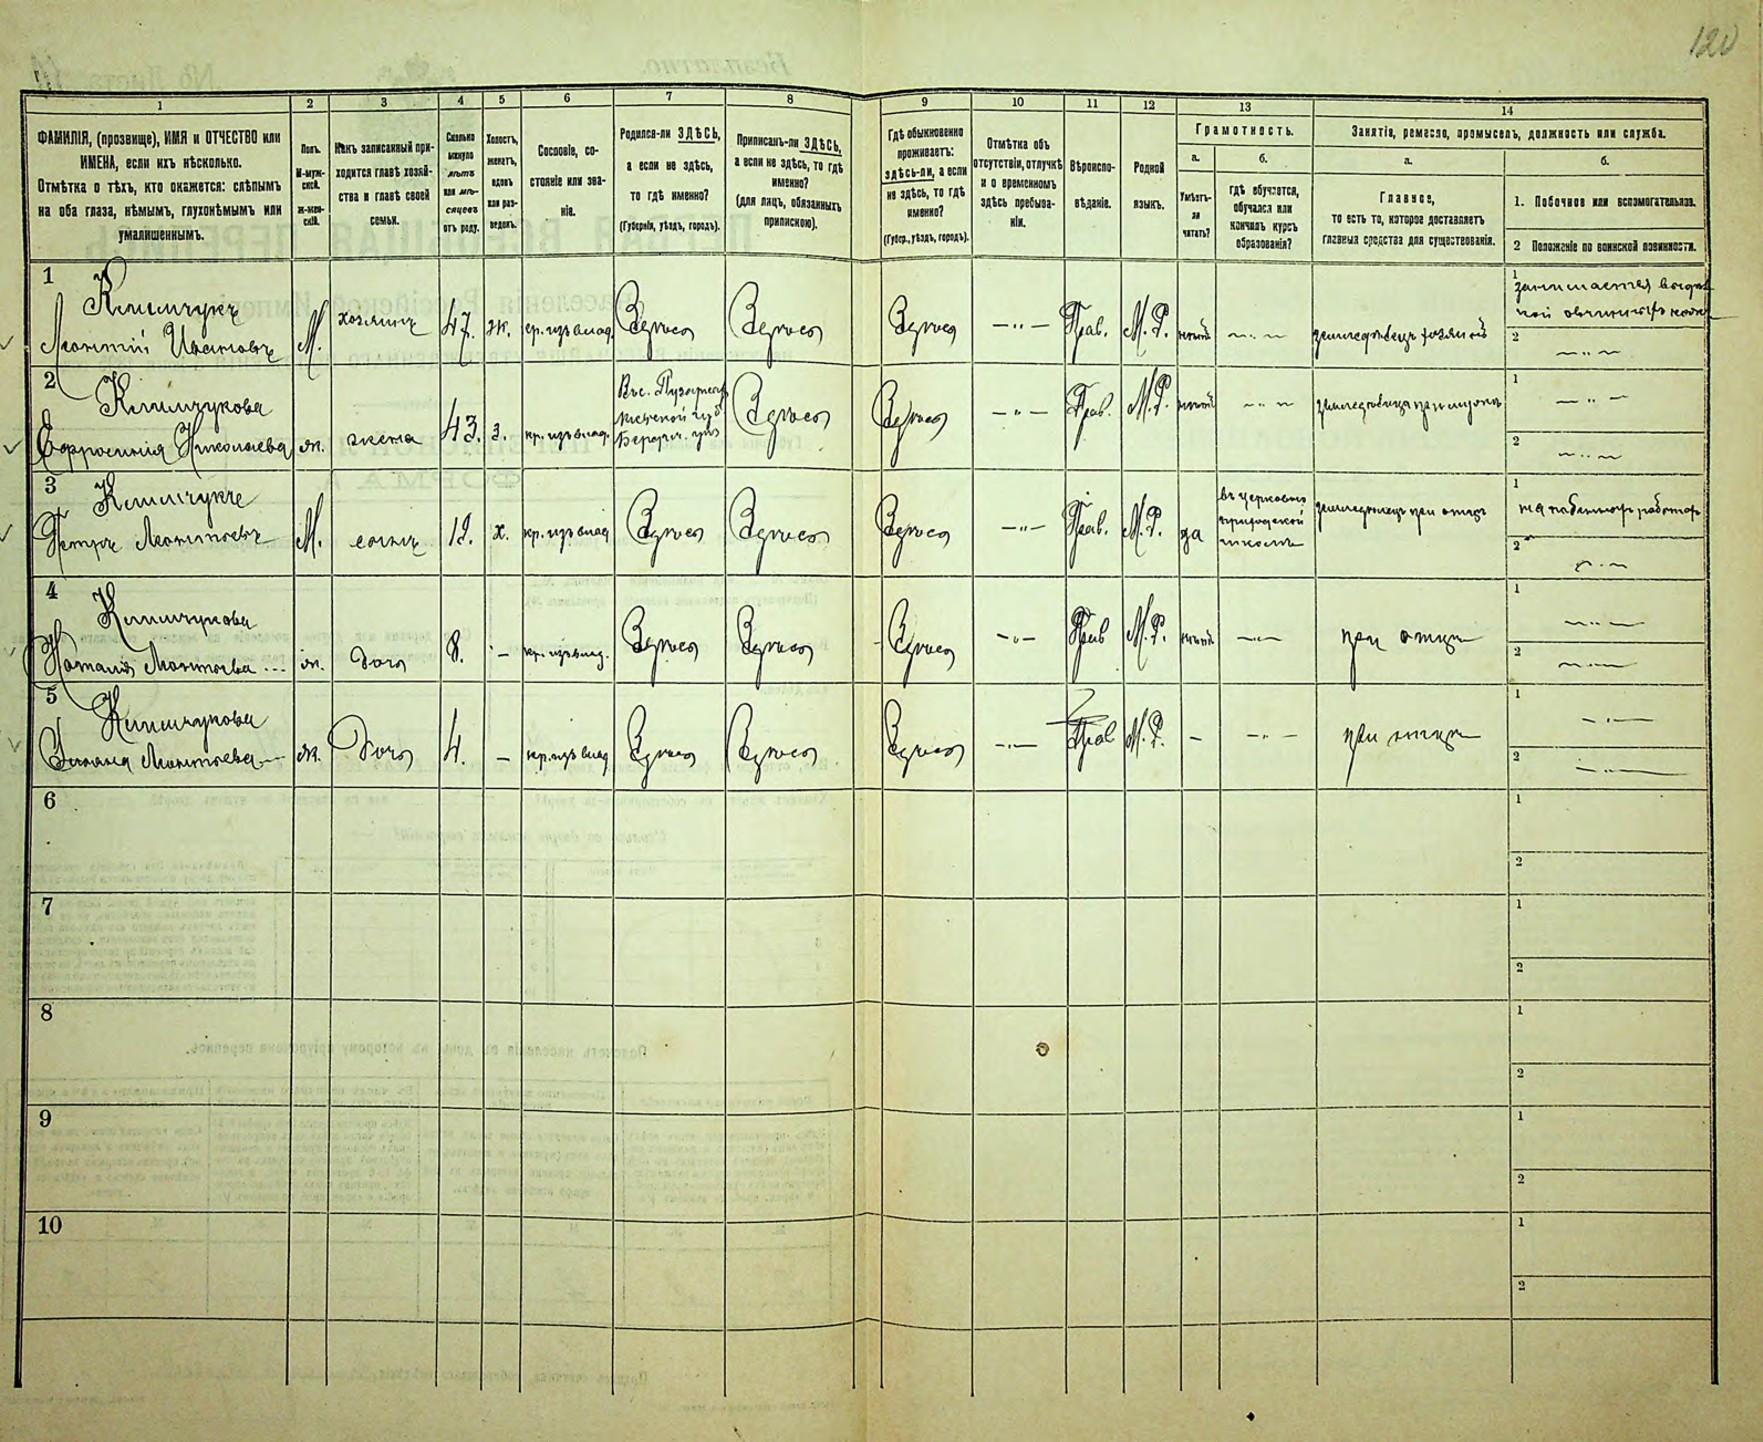 120
1
2
3
4
5
6
7
8
9
10
11
12
13
14
ФАМИЛІЯ, (прозвище), ИМЯ и ОТЧЕСТВО или
ИМЕНА, если ихъ нѣсколько.
Отмѣтка о тѣхъ, кто окажется: слѣпымъ
на оба глаза, нѣмымъ, глухонѣмымъ или
умалишеннымъ.
Полъ.
М-муж-
ской.
Ж-жен-
скій.
Какъ записанный при-
ходится главѣ хозяй-
ства и главѣ своей
семьи.
Сколько
минуло
лѣтъ
или мѣ-
сяцевъ
отъ роду.
Холостъ,
женатъ,
вдовъ
или раз-
веденъ.
Сословіе, со-
стояніе или зва-
ніе.
Родился-ли ЗДѢСЬ,
а если не здѣсь,
то гдѣ именно?
(Губернія, уѣздъ, городъ).
Приписанъ-ли ЗДѢСЬ,
а если не здѣсь, то гдѣ
именно?
(для лицъ, обязанныхъ
припискою).
Гдѣ обыкновенно
проживаетъ:
здѣсь-ли, а если
не здѣсь, то гдѣ
именно?
(Губер., уѣздъ, городъ).
Отмѣтка объ
отсутствіи, отлучкѣ
и о временномъ
здѣсь пребыва-
ніи.
Вѣроиспо-
вѣданіе.
Родной
языкъ.
Грамотность.
а.
Умѣетъ-
ли
читать?
б.
гдѣ обучается,
обучался или
кончилъ курсъ
образованія?
Занятіе, ремесло, промыселъ, должность или служба.
а.
Главное,
то есть то, которое доставляетъ
главныя средства для существованія.
б.
1. Побочное или вспомогательное.
2 Положеніе по воинской повинности.
1
Климчукъ
Леонтій Ивановъ
М.
хозяинъ
47.
ж.
кр. изъ влад.
Здѣсь
Здѣсь
Здѣсь
—"—
Прав.
М. Р.
нѣтъ
—"—
земледѣлецъ хозяинъ
1
занимается
2
—"—
2
Климчукова
Ефросинія Николаева
ж.
жена
43.
з.
кр. изъ влад.
Въ с.
Кіевской губ.
Бердич. уѣз
Здѣсь
Здѣсь
—"—
Прав.
М. Р.
нѣтъ
—"—
земледѣлица при мужѣ
1
—"—
2
—"—
3
Климчукъ
Петръ Леонтіевъ
М.
сынъ
12.
х.
кр. изъ влад
Здѣсь
Здѣсь
Здѣсь
—"—
Прав.
М. Р.
да
въ церковно
приходской
школѣ
земледѣлецъ при отцѣ
1
2
—"—
4
Климчукова
Наталія Леонтіева
ж.
дочь
8.
—
кр. изъ влад.
Здѣсь
Здѣсь
Здѣсь
—"—
Прав
М. Р.
нѣтъ
—"—
при отцѣ
1
—"—
2
—"—
5
Климчукова
Леонтіева
ж.
дочь
4.
—
кр. изъ влад
Здѣсь
Здѣсь
Здѣсь
—"—
Прав
М. Р.
—
—"—
при отцѣ
1
—"—
2
—"—
6
1
2
7
1
2
8
1
2
9
1
2
10
1
2